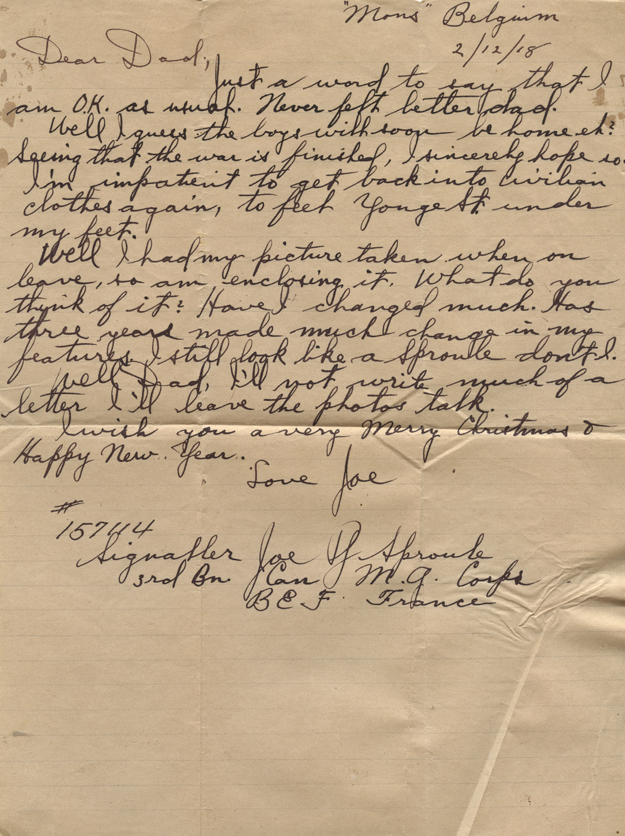 "Mons" Belgium
2/12/18
Dear Dad,
Just a word to say that I
am O.K. as usual. Never felt better dad.
Well I guess the boys with soon be home eh?
Seeing that the war is finished, I sincerely hope so.
I'm impatient to get back into civilian
clothes again, to feel Yonge St. under
my feet.
Well I had my picture taken when on
leave, so am enclosing it. What do you
think of it? Have I changed much. Has
three years made much change in my
features, I still look like a Sproule don't I.
Well Dad, I'll not write much of a
letter I'll leave the photos talk.
I wish you a very Merry Christmas &
Happy New. Year.
Love Joe
#
157444
Signaller Joe Sproule
3rd Bn Can M.G. Corps
B E F. France